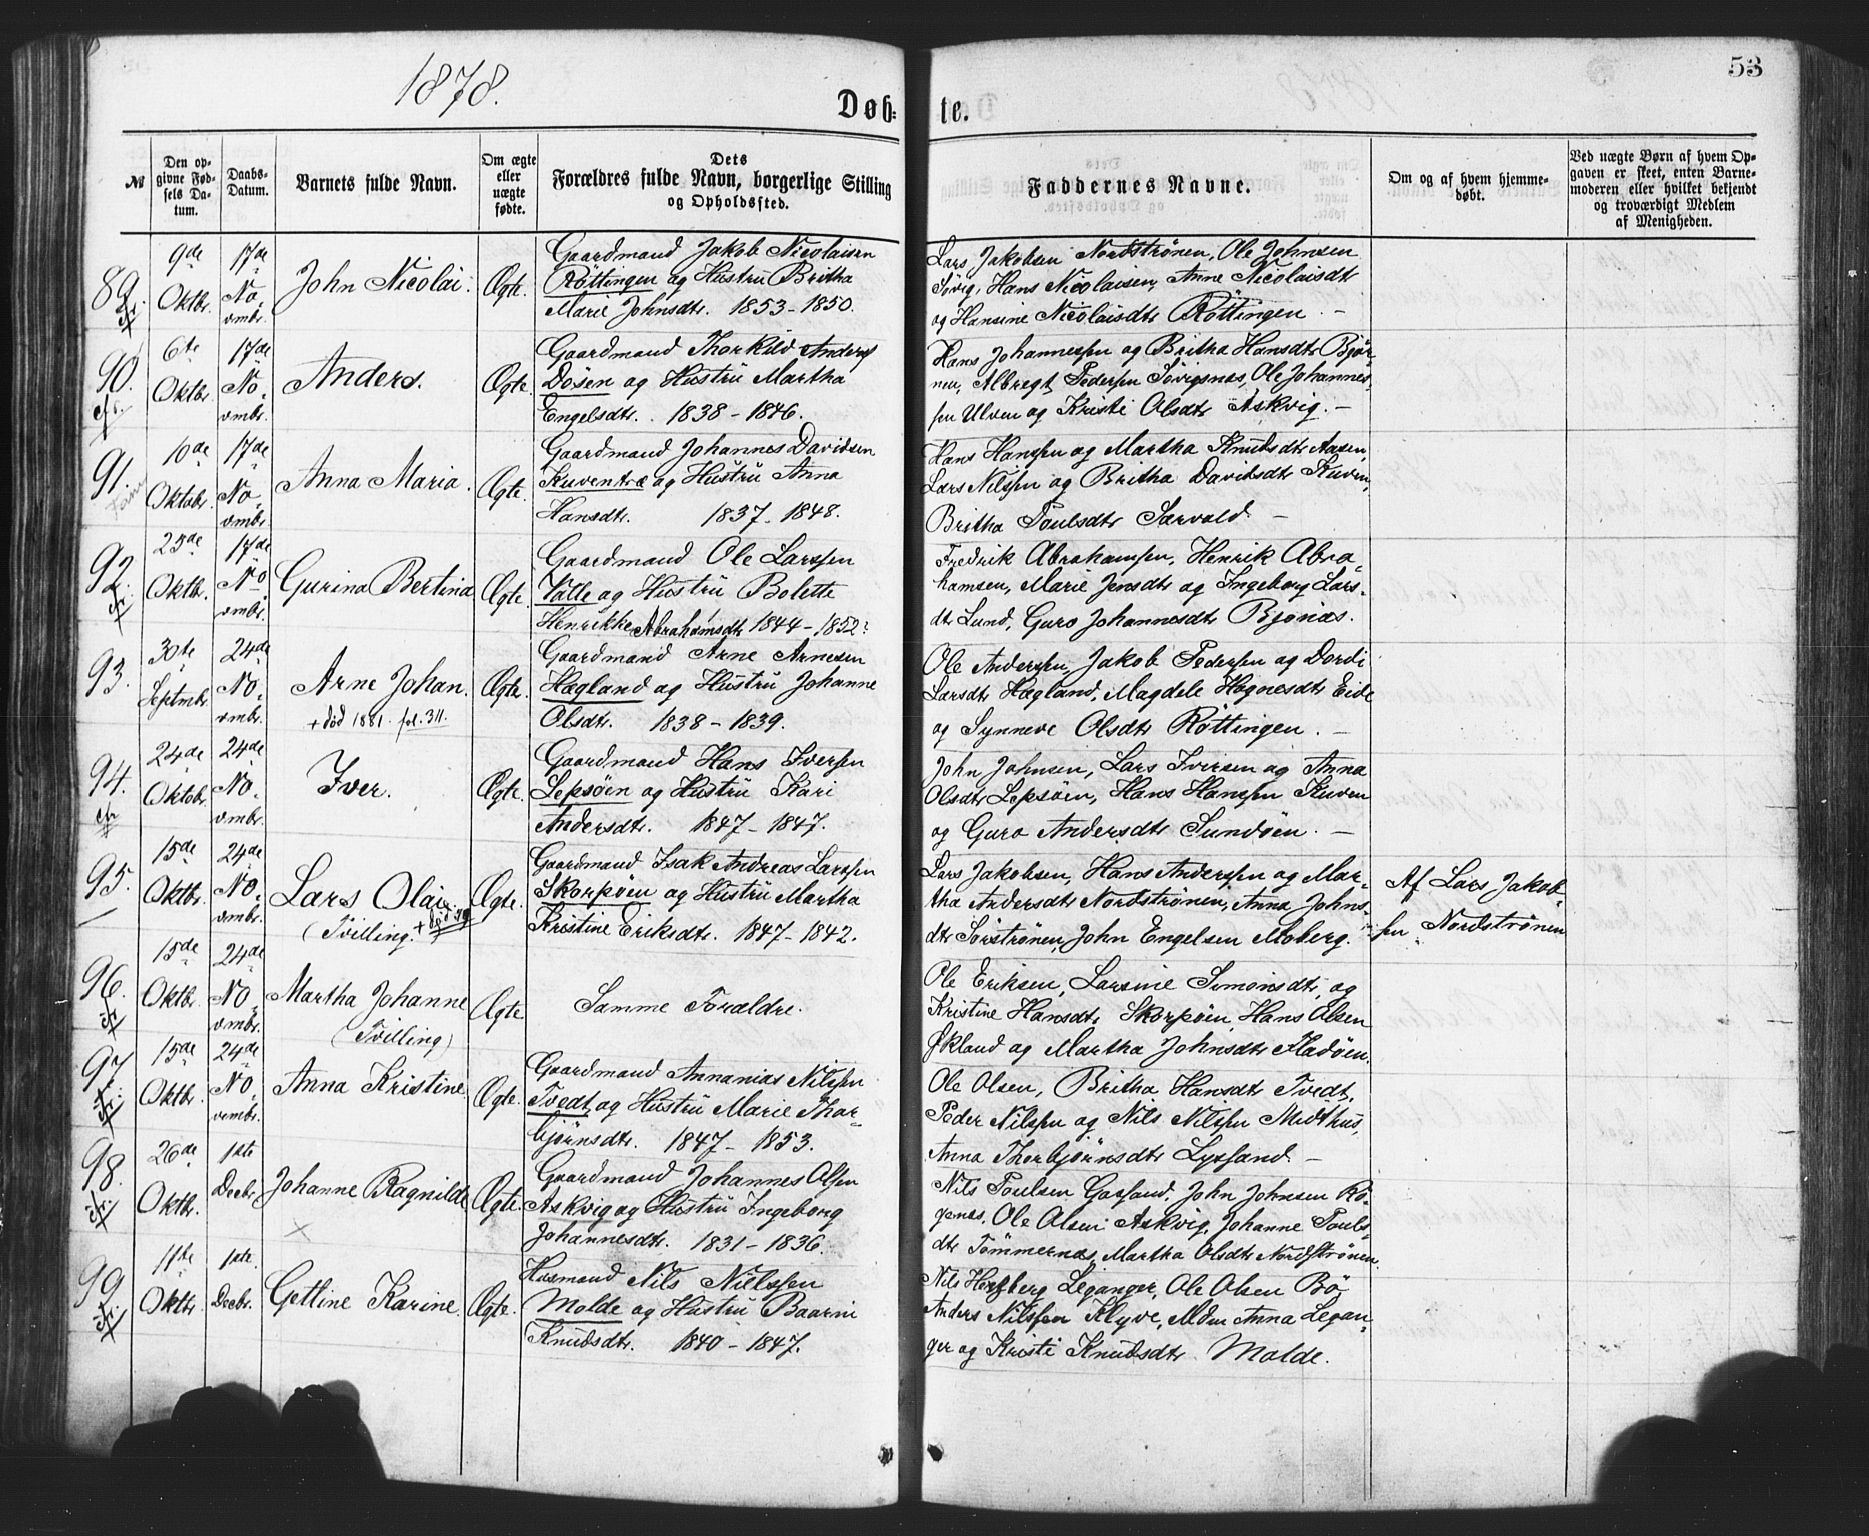 1878.
53
Døb-
te.
№
Den op-
givne Fød-
sels Da-
tum.
Daabs-
Datum.
Barnets fulde Navn.
Om ægte
eller
uægte
fødte.
Dets
Forældres fulde Navn, borgerlige Stilling
og Opholdssted.
Faddernes Navne.
Om og af hvem hjemme-
døbt.
Ved uægte Børn af hvem Op-
gaven er skeet, enten Barne-
moderen eller hvilket bekjendt
og troværdigt Medlem
af Menigheden.
89.
9de
Oktbr.
17de
No-
vmbr.
John Nicolai.
Ægte.
Gaardmand Jakob Nicolaisen
Røttingen og Hustru Britha
Marie Johnsdtr. 1853-1850.
Lars Jakobsen Nordstrønen, Ole Johnsen
Søvig, Hans Nicolaisen, Anne Nicolaisdtr
og Hansine Nicolaisdtr Røttingen. -
90.
6te
Oktbr.
17de
No-
vmbr.
Anders.
Ægte.
Gaardmand Thorkild Anders
Døsen og Hustru Martha
Engelsdtr. 1838-1846.
Hans Johannessen og Britha Hansdtr Bjør-
nen, Albregt Pedersen Søvigsnæs, Ole Johannes-
sen Ulven og Kristi Olsdtr Askvig. -
91.
10de
Oktobr.
17de
No-
vmbr.
Anna Maria.
Ægte.
Gaardmand Johannes Davidsen
Kuventræ og Hustru Anna
Hansdtr. 1837-1848.
Hans Hanssen og Martha Knudsdtr Aasen,
Lars Nilssen og Britha Davidsdtr Kuven,
Britha Poulsdtr Særvold -
92.
25de
Oktbr.
17de
No-
vmbr.
Gurina Bertina
Ægte.
Gaardmand Ole Larssen
Valle og Hustru Bolette
Henrikke Abrahamsdtr 1844-1852.
Fredrik Abrahamsen, Henrik Abra-
hamsen, Marie Jensdtr og Ingeborg Lars-
dtr Lund, Guro Johannesdtr Bjønæs.
93.
30te
Septmbr.
24de
No-
vmbr.
Arne Johan.
+ død 1881. fol. 311.
Ægte.
Gaardmand Arne Arnesen
Hægland og Hustru Johanne
Olsdtr. 1838-1839.
Ole Anderssen, Jakob Pedersen og Dordi
Larsdtr Hægland, Magdele Hagnesdtr Eide
og Synneve Olsdtr Røttingen. -
94.
24de
Oktobr.
24de
No-
vmbr.
Iver.
Ægte.
Gaardmand Hans Iversen
Lepsøen og Hustru Kari
Andersdtr. 1847-1847.
John Johnsen, Lars Iversen og Anna
Olsdtr Lepsøen, Hans Hanssen Kuven
og Guro Andersdtr Sundøen. -
95.
15de
Oktbr.
24de
No-
vmbr.
Lars Olai.
(Tvilling.
Ægte.
Gaardmand Isak Andreas Larssen
Skorpøen og Hustru Martha
Kristine Eriksdtr. 1847-1842.
Lars Jakobsen, Hans Anderssen og Mar-
tha Andersdtr Nordstrønen, Anna Johns-
dtr Sørstrønen, John Engelsen Moberg.
Af Lars Jakob-
sen Nordstrønen
96.
15de
Oktbr.
24de
No-
vmbr.
Martha Johanne
(Tvilling)
Ægte
Samme Forældre.
Ole Eriksen, Larsine Simonsdtr og
Kristine Hansdtr Skorpøen, Hans Olsen
Økland og Martha Johnsdtr Fladøen.
97.
15de
Oktbr.
24de
No-
vmbr.
Anna Kristine
Ægte.
Gaardmand Annanias Nilssen
Tvedt og Hustru Marie Thor-
bjørnsdtr. 1847-1853.
Ole Olsen, Britha Hansdtr Tvedt,
Peder Nilssen og Nils Nilssen Midthus,
Anna Thorbjørnsdtr Lyssand -
98.
26de
Oktbr.
1ste
Decbr.
Johanne Ragnilde
Ægte.
Gaardmand Johannes Olsen
Askvig og Hustru Ingeborg
Johannesdtr. 1831-1836.
Nils Poulsen Gaasand, John Johnsen Rø-
genæs, Ole Olsen Askvig, Johanne Pouls-
dtr Tømmernæs, Martha Olsdtr Nordstrønen.
99.
11te
Oktbr.
1ste.
Decbr.
Gettine Karine.
Ægte.
Husmand Nils Nielssen
Molde og Hustru Baarni
Knudsdtr. 1840-1847.
Nils Hertzberg Leganger, Ole Olsen Bø
Anders Nilssen Klyve, Mdm Anna Legan-
ger og Kristi Knudsdtr Molde.